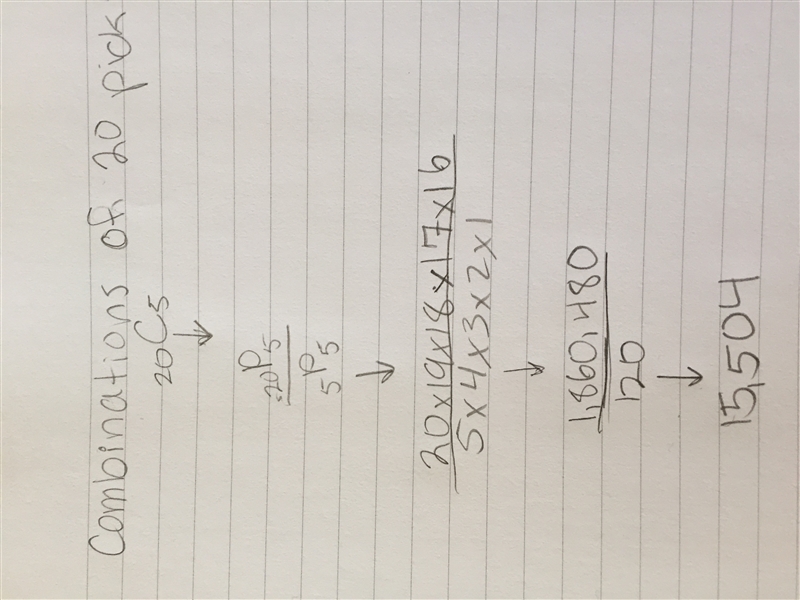 Combinations of 20 pick
20C5
↓
20P5
5P5
↓
20x19x18x17x16
5x4x3x2x1
↓
1,860,480
120
↓
15,504